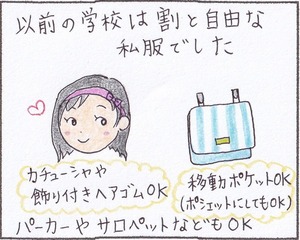 以前の学校は割と自由な
私服でした
カチューシャや
飾り付きヘアゴムOK
移動ポケットOK
(ポシェットにしてもOK)
パーカーやサロペットなどもOK